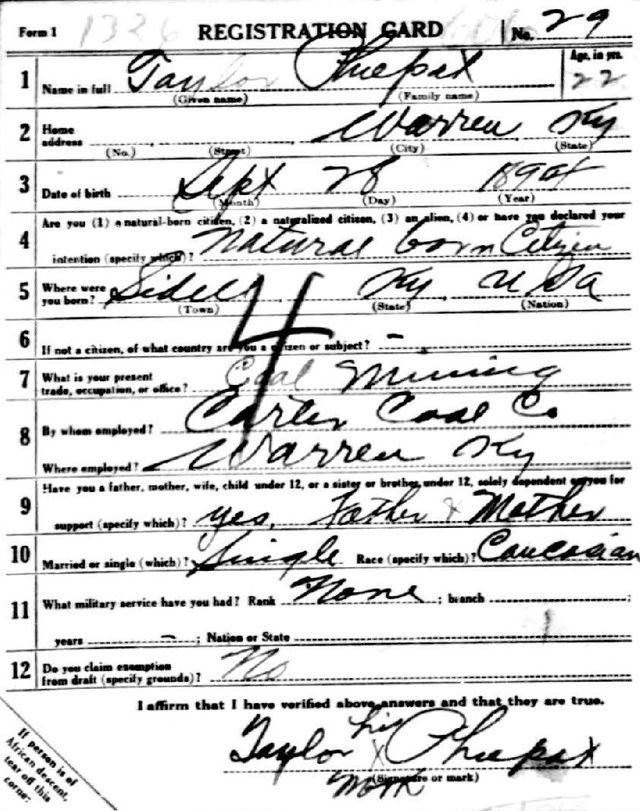 Form 1 1326 REGISTRATION CARD No. 29
1 Name in full Taylor Phepax Age, in yrs. 22
(Given name) (Family name)
2 Home address Warren Ky
(No.) (Street) (City) (State)
3 Date of birth Sept 28 1894
(Month) (Day) (Year)
4 Are you (1) a natural-born citizen, (2) a naturalized citizen, (3) an alien, (4) or have you declared your
intention (specify which)? Natural born Citizen
5 Where were you born? Sidell Ky USa
(Town) (State) (Nation)
6 If not a citizen, of what country are you a citizen or subject? -
4
7 What is your present trade, occupation, or office? Coal Mining
8 By whom employed? Carter Coal Co
Where employed? Warren Ky
9 Have you a father, mother, wife, child under 12, or a sister or brother under 12, solely dependent on you for
support (specify which)? yes, Father & Mother
10 Married or single (which)? Single Race (specify which)? Caucasian
11 What military service have you had? Rank None ; branch ;
years - ; Nation or State
12 Do you claim exemption from draft (specify grounds)? No
I affirm that I have verified above answers and that they are true.
his
Taylor X Phepax
mark
(Signature or mark)
If person is of
African descent,
tear off this
corner.